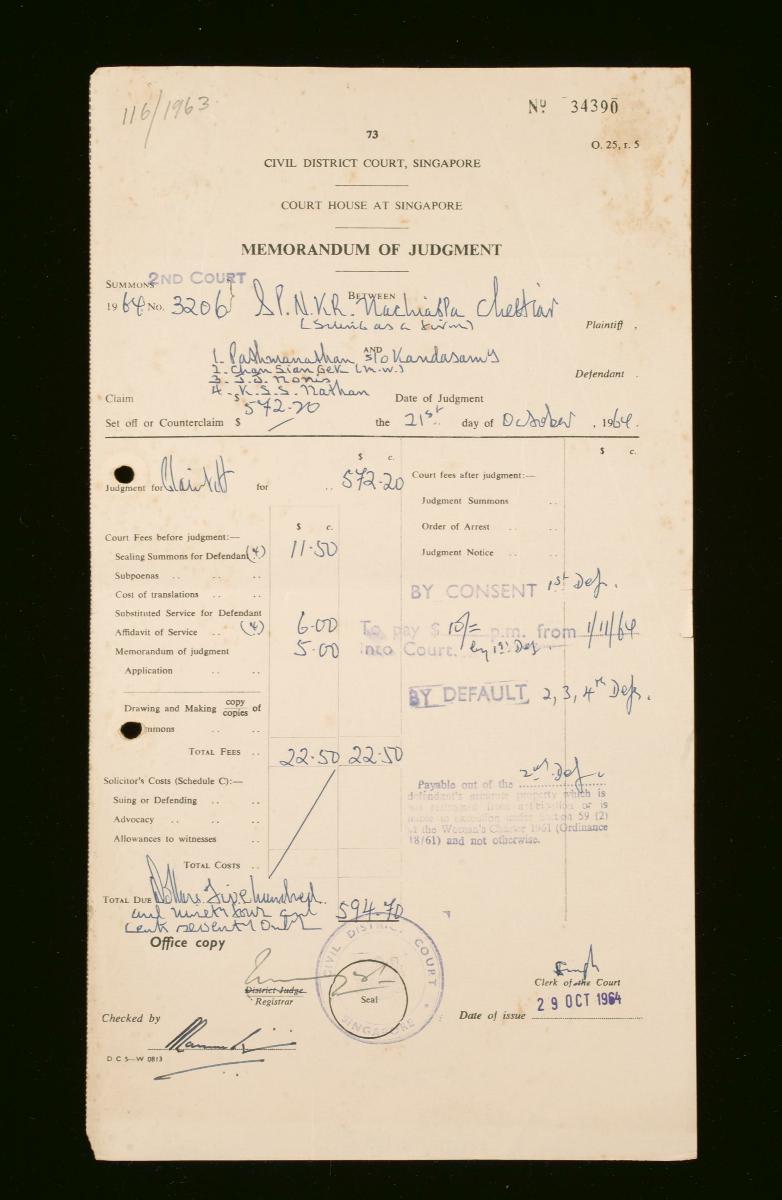 116/1963
Nº 34390
73
O. 25, r. 5
CIVIL DISTRICT COURT, SINGAPORE
COURT HOUSE AT SINGAPORE
MEMORANDUM OF JUDGMENT
SUMMONS 2ND COURT
BETWEEN
1964 No. 3206 SP.N.KR. Nachiappa Chettiar
(Suing as a firm) Plaintiff ,
AND
1. Pathmanathan s/o Kandasamy
2. Chan Sian Gek (m.w.) Defendant .
3. J.S. Nonis
4. K.S.S. Nathan
Claim $ 572-20 Date of Judgment
Set off or Counterclaim $ / the 21st day of October , 1964.
$ c. $ c.
Judgment for Plaintiff for .. 572-20 Court fees after judgment:—
Judgment Summons ..
$ c. Order of Arrest .. ..
Court Fees before judgment:— Judgment Notice .. ..
Sealing Summons for Defendant (4) 11-50
Subpoenas .. .. ..
Cost of translations .. .. BY CONSENT 1st Def.
Substituted Service for Defendant
Affidavit of Service .. (4) 6-00 To pay $ 10/= p.m. from 1/11/64
Memorandum of judgment 5-00 into Court. by 1st Def.
Application .. ..
BY DEFAULT 2, 3, 4th Defs.
Drawing and Making copy copies of
mmons .. ..
TOTAL FEES .. 22-50 22-50
Solicitor's Costs (Schedule C):— Payable out of the 2nd Def.
Suing or Defending .. .. defendant's separate property which is
Advocacy .. .. .. or is
Allowances to witnesses .. Section 59 (2)
of the Women's Charter 1961 (Ordinance
18/61) and not otherwise.
TOTAL COSTS ..
TOTAL DUE Dollars five hundred
and ninety four and 594-70
cents seventy only
Office copy
CIVIL DISTRICT COURT
SINGAPORE
Seal
District Judge
Registrar
Clerk of the Court
Date of issue 29 OCT 1964
Checked by
D C S—W 0813